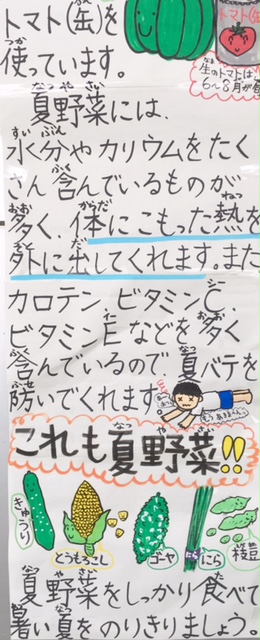 トマト(缶)を
使っています。
トマト(缶)
生のトマトは
6〜8月が旬
夏野菜には、
水分やカリウムをたく
さん含んでいるものが
多く、体にこもった熱を
外に出してくれます。また
カロテン、ビタミンC、
ビタミンEなどを多く
含んでいるので、夏バテを
防いでくれます。
これも夏野菜!!
きゅうり
とうもろこし
ゴーヤ
にら
枝豆
夏野菜をしっかり食べて
暑い夏をのりきりましょう。